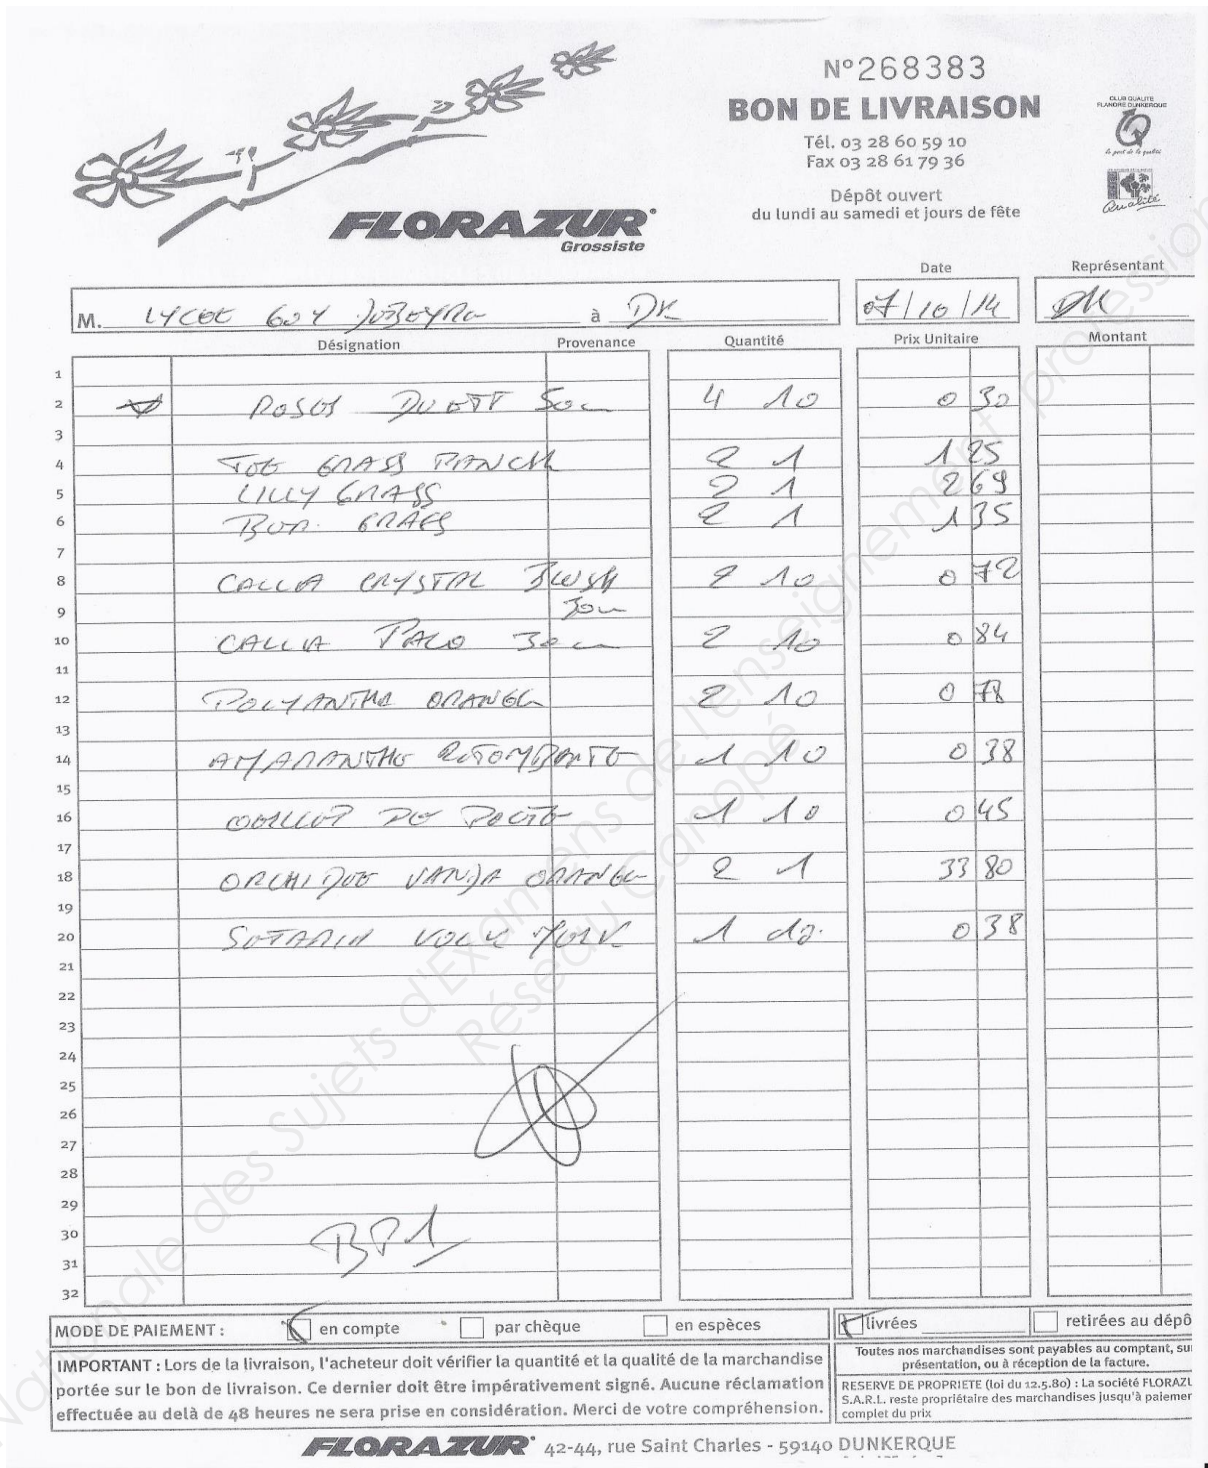 N°268383
BON DE LIVRAISON
Tél. 03 28 60 59 10
Fax 03 28 61 79 36
Dépôt ouvert
du lundi au samedi et jours de fête
CLUB QUALITE
FLANDRE DUNKERQUE
Qualité
FLORAZUR
Grossiste
Date
Représentant
M. LYCEE GUY DEBEYRE à DK
07/10/14
DK
Désignation Provenance Quantité Prix Unitaire Montant
1
2 ROSES DUETT 50cm 4 10 0 30
3
4 GRASS 2 1 1 25
5 LILLY GRASS 2 1 2 69
6 GRASS 2 1 1 35
7
8 CALLA CRYSTAL BLUSH 2 10 0 72
9 30cm
10 CALLA PACO 30cm 2 10 0 84
11
12 POLYANTHA ORANGE 2 10 0 78
13
14 AMARANTHE RETOMBANTE 1 10 0 38
15
16 OEILLET DE POETE 1 10 0 45
17
18 ORCHIDEE VANDA ORANGE 2 1 33 80
19
20 1 0 38
21
22
23
24
25
26
27
28
29
30
31
32
BP1
MODE DE PAIEMENT : en compte par chèque en espèces livrées retirées au dépô
IMPORTANT : Lors de la livraison, l'acheteur doit vérifier la quantité et la qualité de la marchandise
portée sur le bon de livraison. Ce dernier doit être impérativement signé. Aucune réclamation
effectuée au delà de 48 heures ne sera prise en considération. Merci de votre compréhension.
Toutes nos marchandises sont payables au comptant, su
présentation, ou à réception de la facture.
RESERVE DE PROPRIETE (loi du 12.5.80) : La société FLORAZU
S.A.R.L. reste propriétaire des marchandises jusqu'à paiemen
complet du prix
FLORAZUR 42-44, rue Saint Charles - 59140 DUNKERQUE
Nationale des Sujets d'Examens de l'enseignement profession
Réseau Canopé